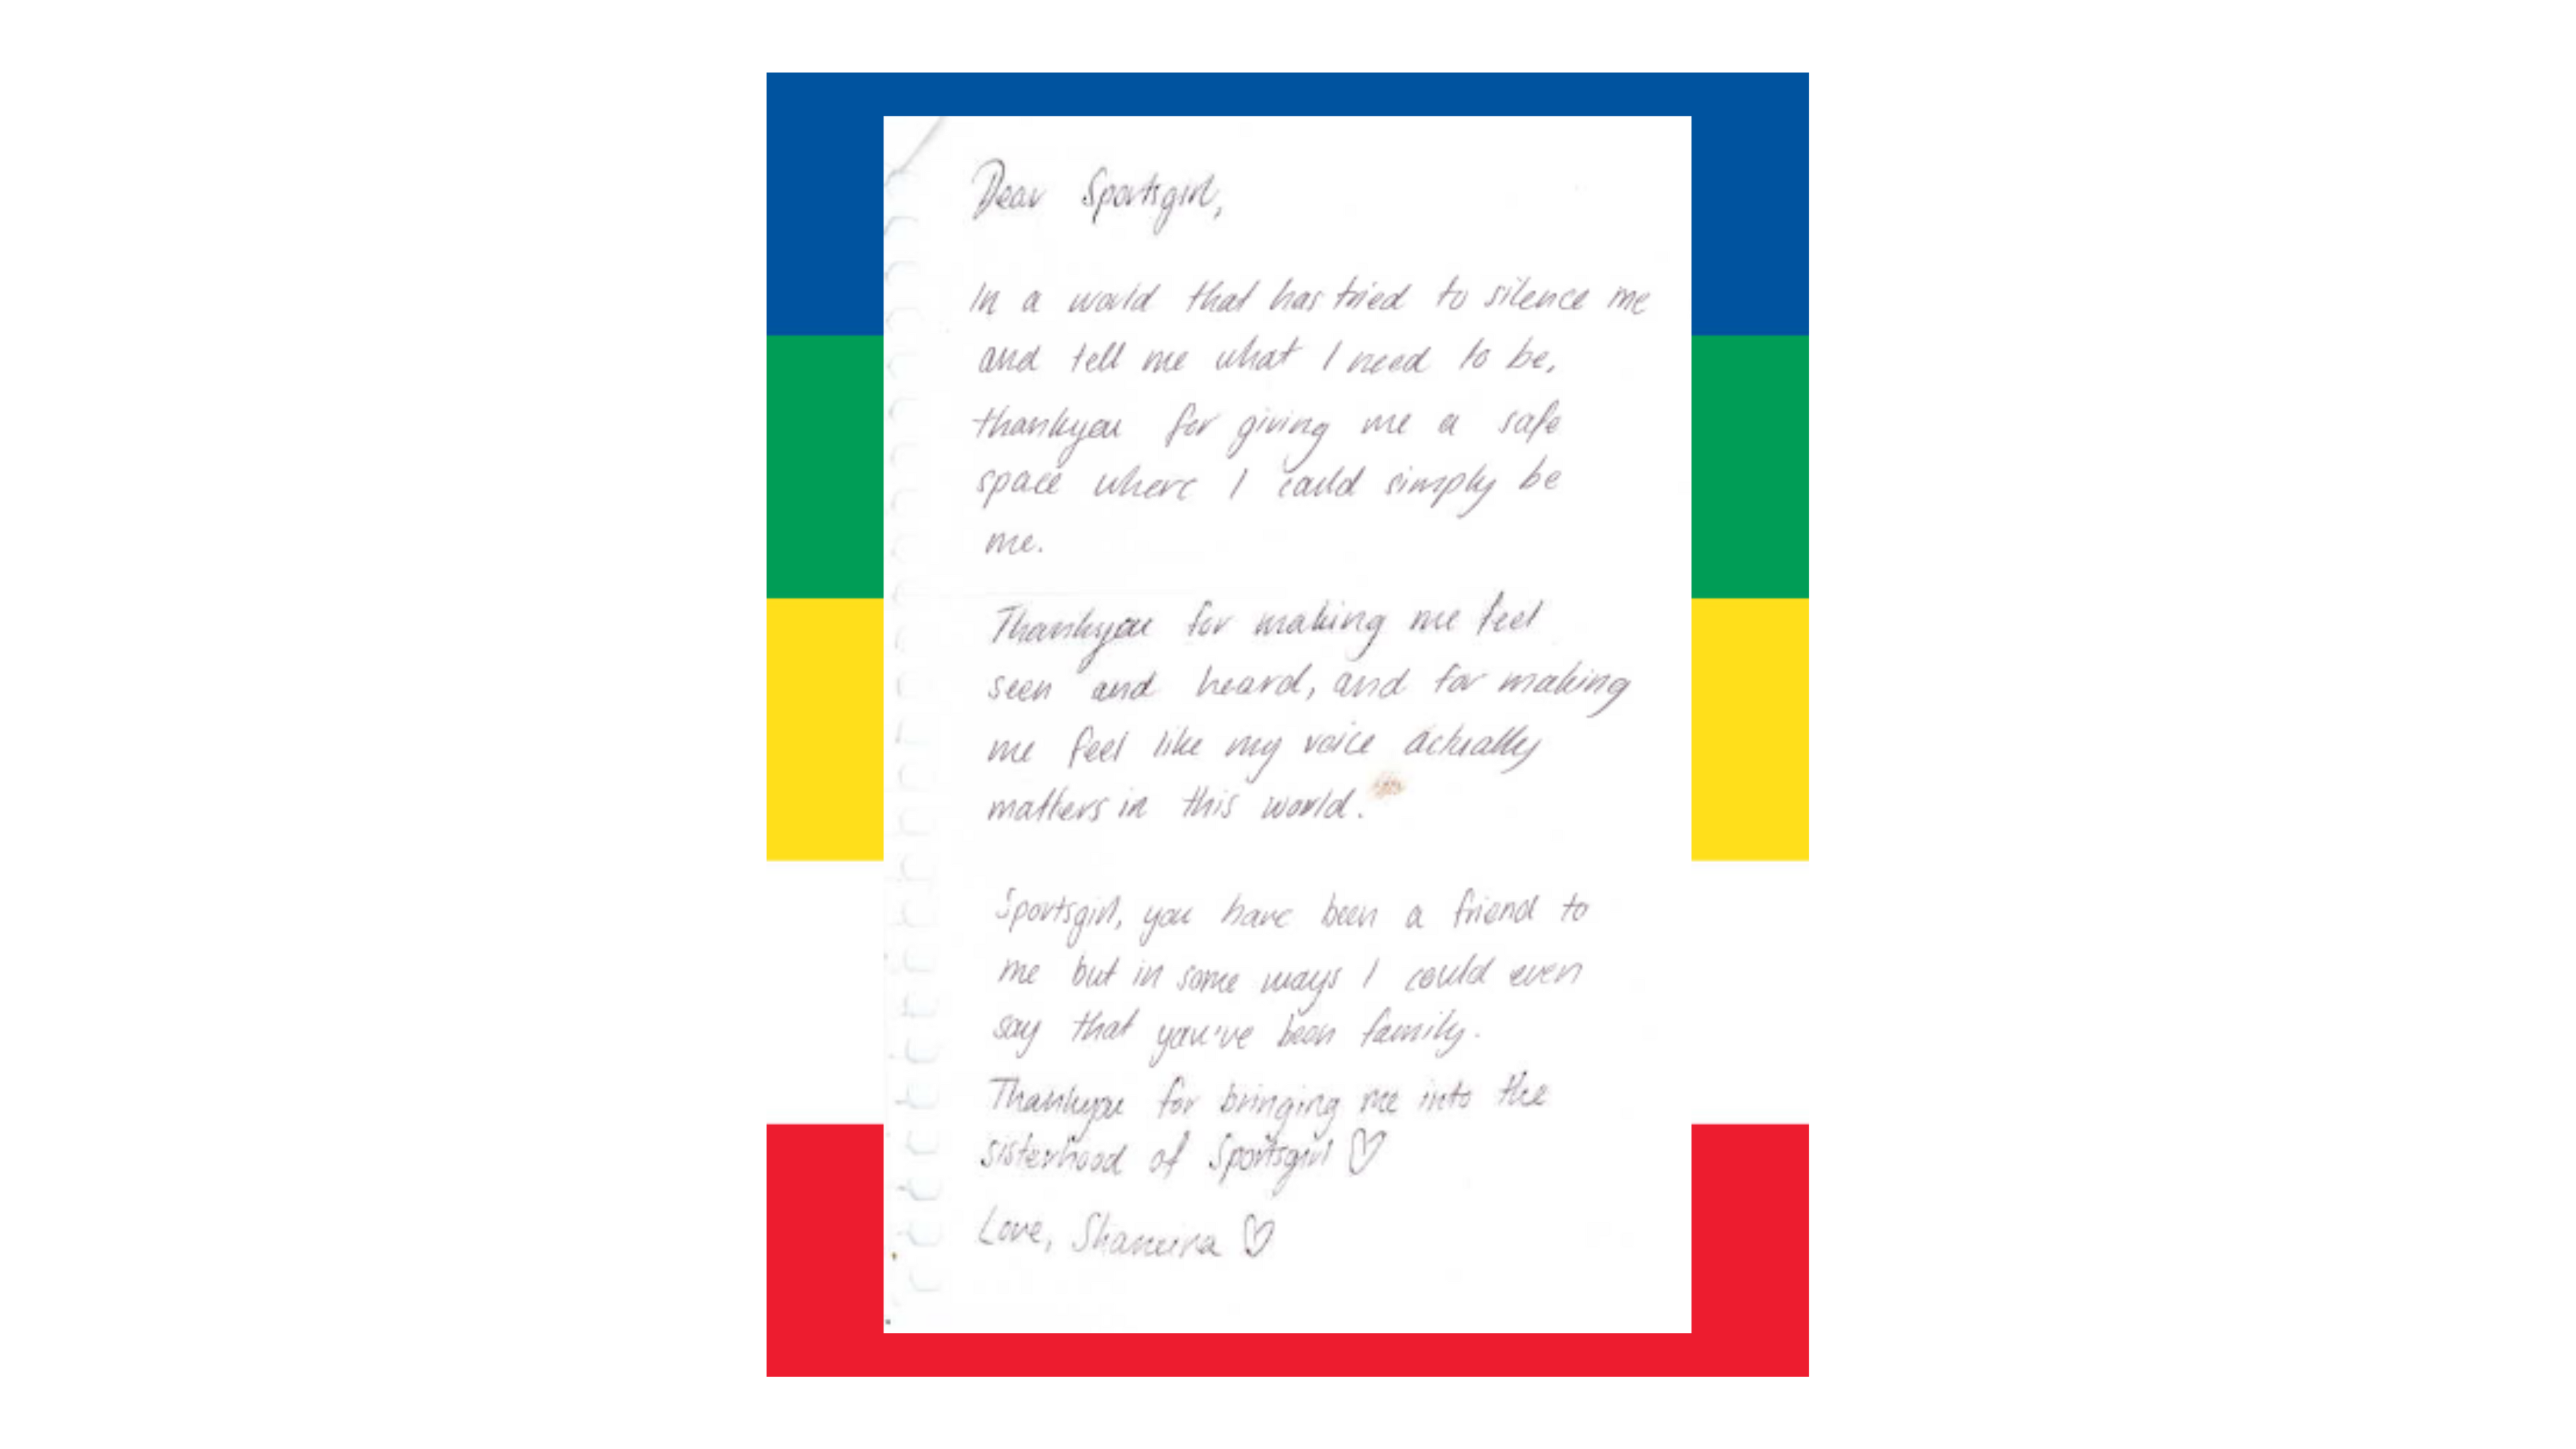 Dear Sportsgirl,
In a world that has tried to silence me
and tell me what I need to be,
thankyou for giving me a safe
space where I could simply be
me.
Thankyou for making me feel
seen and heard, and for making
me feel like my voice actually
matters in this world.
Sportsgirl, you have been a friend to
me but in some ways I could even
say that you've been family.
Thankyou for bringing me into the
sisterhood of Sportsgirl ♡
Love, Shameira ♡